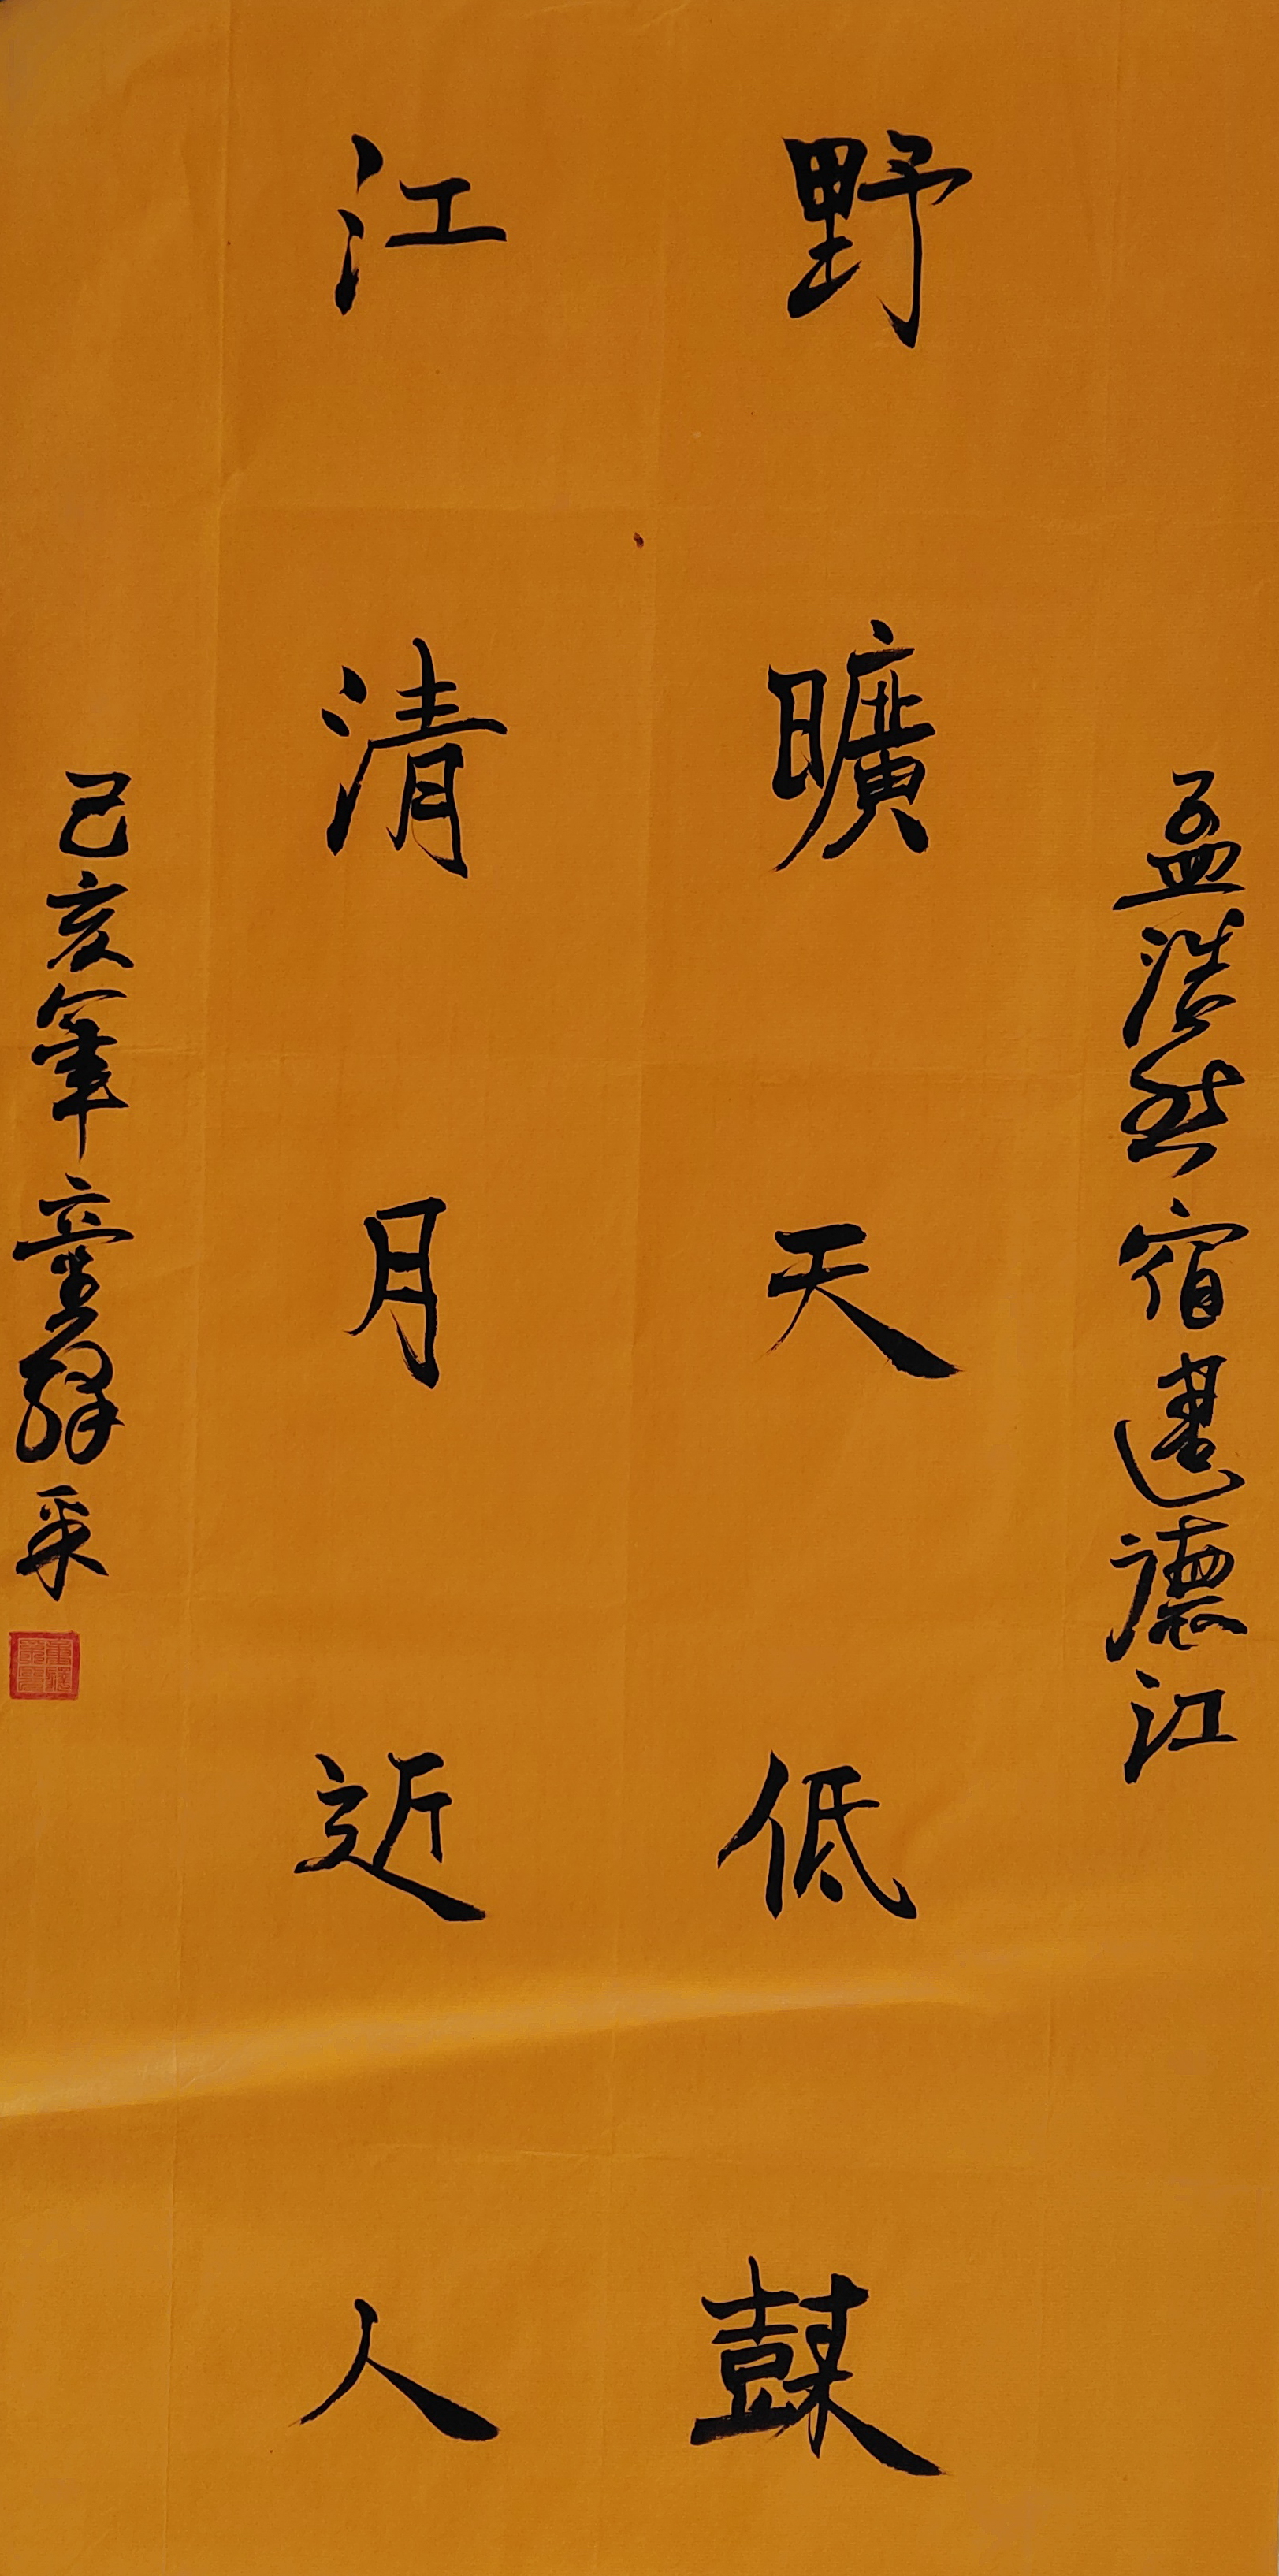 孟浩然宿建德江
野曠天低樹
江清月近人
己亥年童